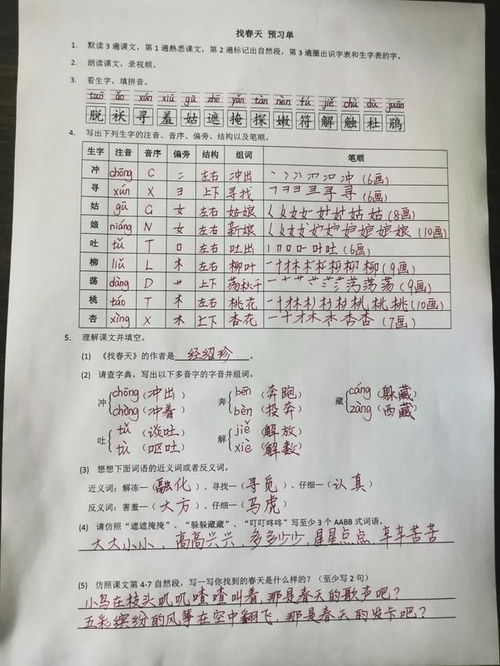 找春天 预习单
1. 默读 3 遍课文，第 1 遍熟悉课文，第 2 遍标记出自然段，第 3 遍圈出识字表和生字表的字。
2. 朗读课文，录视频。
3. 看生字，填拼音。
tuō ǎo xún xiū gū zhē yǎn tàn nèn fú jiě chù dù juān
脱 袄 寻 羞 姑 遮 掩 探 嫩 符 解 触 杜 鹃
4. 写出下列生字的注音、音序、偏旁、结构以及笔顺。
生字 注音 音序 偏旁 结构 组词 笔顺
冲 chōng C 冫 左右 冲出 冲 (6画)
寻 xún X 彐 上下 寻找 寻 (6画)
姑 gū G 女 左右 姑娘 姑 (8画)
娘 niáng N 女 左右 新娘 娘 (10画)
吐 tǔ T 口 左右 吐出 吐 (6画)
柳 liǔ L 木 左右 柳叶 柳 (9画)
荡 dàng D 艹 上下 荡秋千 荡 (9画)
桃 táo T 木 左右 桃花 桃 (10画)
杏 xìng X 木 上下 杏花 杏 (7画)
5. 理解课文并填空。
(1) 《找春天》的作者是 经绍珍 。
(2) 请查字典，写出以下多音字的字音并组词。
冲 chōng (冲出) 奔 bēn (奔跑) 藏 cáng (躲藏)
chòng (冲着) bèn (投奔) zàng (西藏)
吐 tǔ (谈吐) 解 jiě (解放)
tù (呕吐) xiè (解数)
(3) 想想下面词语的近义词或者反义词。
近义词：解冻—(融化)、寻找—(寻觅)、仔细—(认真)
反义词：害羞—(大方)、仔细—(马虎)
(4) 请仿照“遮遮掩掩”、“躲躲藏藏”、“叮叮咚咚”写至少 3 个 AABB 式词语。
大大小小、高高兴兴、多多少少、星星点点、辛辛苦苦
(5) 仿照课文第 4-7 自然段，写一写你找到的春天是什么样的？（至少写 2 句）
小鸟在枝头叽叽喳喳叫着，那是春天的歌声吧？
五彩缤纷的风筝在空中翻飞，那是春天的发卡吧？